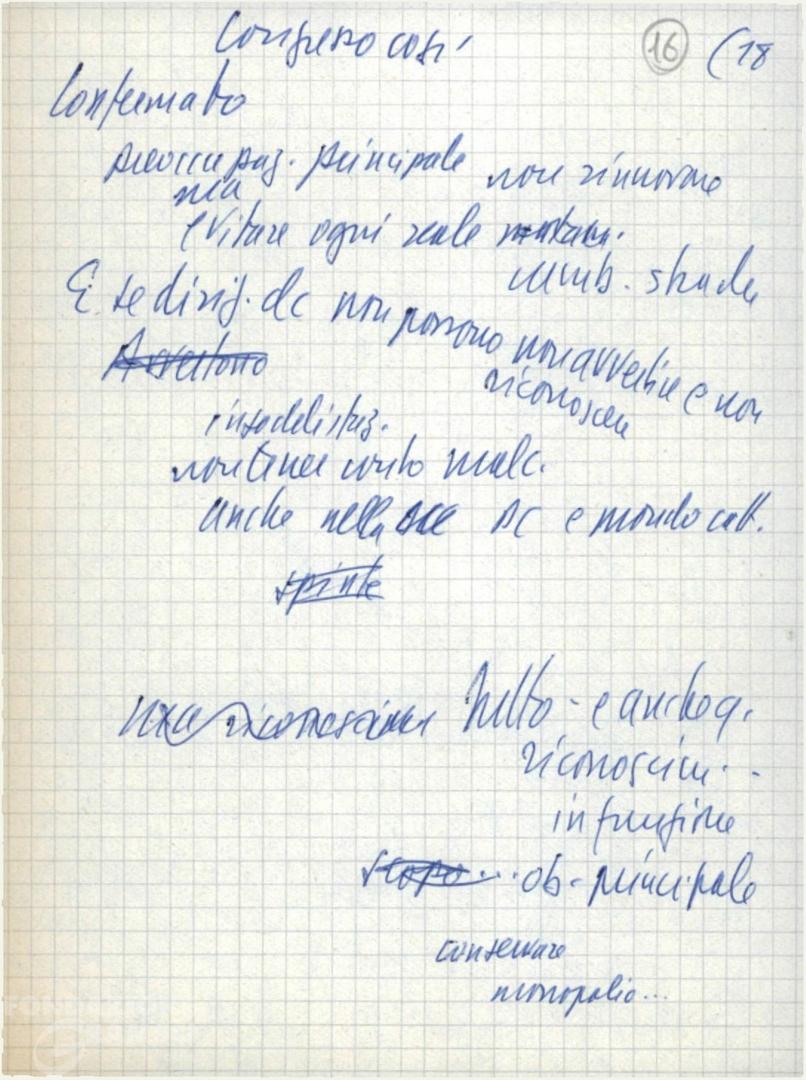 Congresso così 16 (18
Confermato
preoccupaz. principale non rinnovare
ma
evitare ogni reale mutam.
camb. strada
E se dirig. dc non possono non avvertire e non
riconoscere
Avvertono
insoddisfaz.
non tener conto malc.
anche nella DC e mondo catt.
spinte
ma riconoscimen Tutto - e anche q.
riconoscim...
in funzione
scopo... ob. principale
conservare
monopolio...